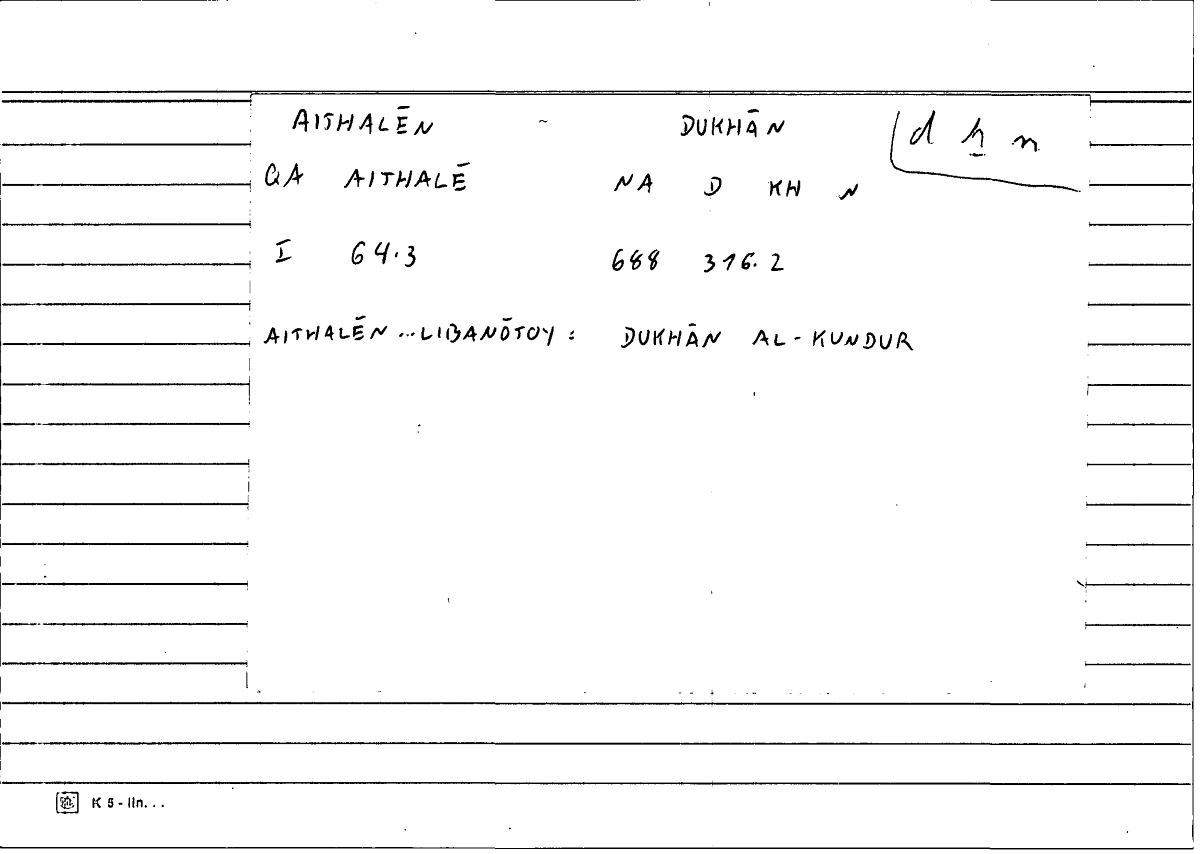 AITHALĒN ~ DUKHĀN d ḫ n
QA AITHALĒ NA D KH N
I 64.3 688 316.2
AITHALĒN ... LIBANŌTOY : DUKHĀN AL-KUNDUR
K 5 - lin...